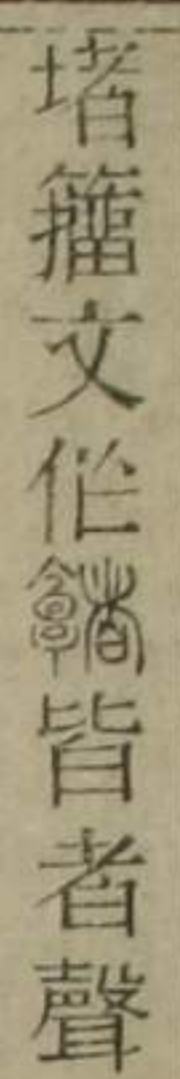 堵籒文作𩫭皆者聲